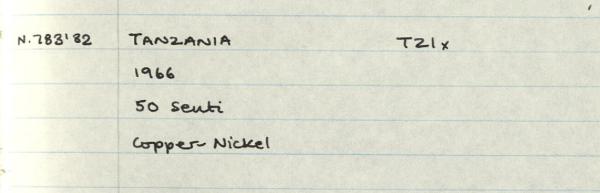 N.783'82 TANZANIA TZ1x
1966
50 Senti
Copper-Nickel